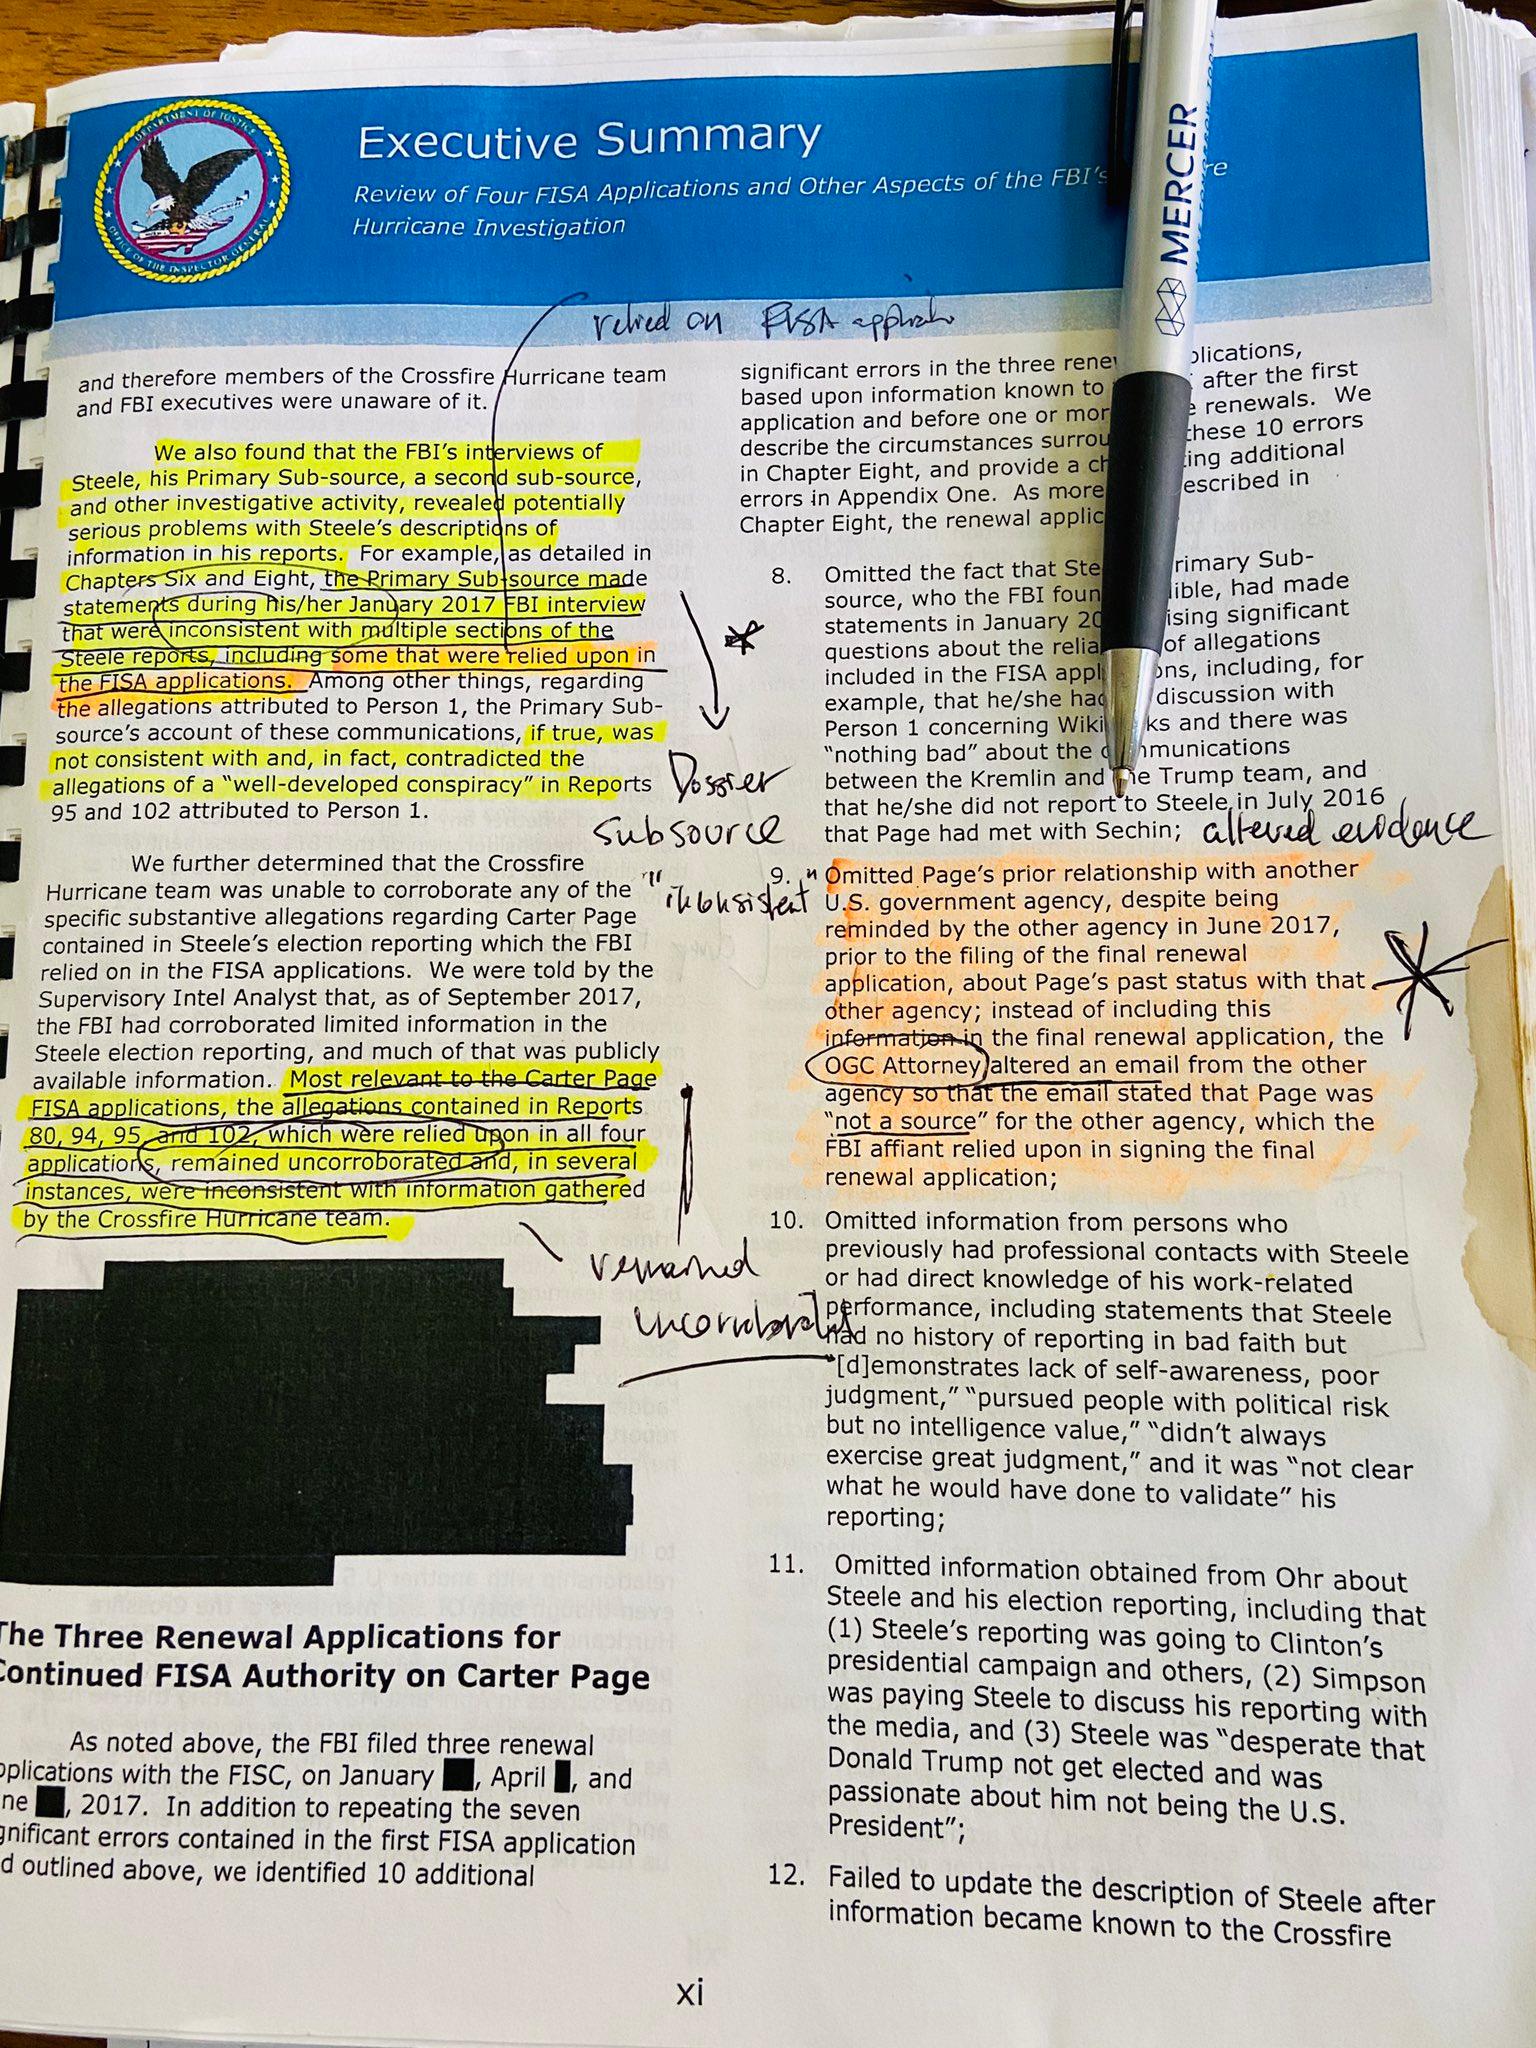 DEPARTMENT OF JUSTICE
OFFICE OF THE INSPECTOR GENERAL
Executive Summary
Review of Four FISA Applications and Other Aspects of the FBI's
Hurricane Investigation
MERCER
relied on FISA
and therefore members of the Crossfire Hurricane team
and FBI executives were unaware of it.
We also found that the FBI's interviews of
Steele, his Primary Sub-source, a second sub-source,
and other investigative activity, revealed potentially
serious problems with Steele's descriptions of
information in his reports. For example, as detailed in
Chapters Six and Eight, the Primary Sub-source made
statements during his/her January 2017 FBI interview
that were inconsistent with multiple sections of the
Steele reports, including some that were relied upon in
the FISA applications. Among other things, regarding
the allegations attributed to Person 1, the Primary Sub-
source's account of these communications, if true, was
not consistent with and, in fact, contradicted the
allegations of a "well-developed conspiracy" in Reports
95 and 102 attributed to Person 1.
Dossier
subsource
"inconsistent"
We further determined that the Crossfire
Hurricane team was unable to corroborate any of the
specific substantive allegations regarding Carter Page
contained in Steele's election reporting which the FBI
relied on in the FISA applications. We were told by the
Supervisory Intel Analyst that, as of September 2017,
the FBI had corroborated limited information in the
Steele election reporting, and much of that was publicly
available information. Most relevant to the Carter Page
FISA applications, the allegations contained in Reports
80, 94, 95, and 102, which were relied upon in all four
applications, remained uncorroborated and, in several
instances, were inconsistent with information gathered
by the Crossfire Hurricane team.
remained
uncorroborated
The Three Renewal Applications for
Continued FISA Authority on Carter Page
As noted above, the FBI filed three renewal
pplications with the FISC, on January , April , and
ne , 2017. In addition to repeating the seven
gnificant errors contained in the first FISA application
d outlined above, we identified 10 additional
significant errors in the three rene plications,
based upon information known to after the first
application and before one or mor e renewals. We
describe the circumstances surrou these 10 errors
in Chapter Eight, and provide a ch ting additional
errors in Appendix One. As more escribed in
Chapter Eight, the renewal applic
8. Omitted the fact that Ste rimary Sub-
source, who the FBI foun ible, had made
statements in January 20 ising significant
questions about the relia of allegations
included in the FISA appl ons, including, for
example, that he/she had discussion with
Person 1 concerning Wiki ks and there was
"nothing bad" about the c mmunications
between the Kremlin and the Trump team, and
that he/she did not report to Steele in July 2016
that Page had met with Sechin; altered evidence
9. Omitted Page's prior relationship with another
U.S. government agency, despite being
reminded by the other agency in June 2017,
prior to the filing of the final renewal
application, about Page's past status with that
other agency; instead of including this
information in the final renewal application, the
OGC Attorney altered an email from the other
agency so that the email stated that Page was
"not a source" for the other agency, which the
FBI affiant relied upon in signing the final
renewal application;
10. Omitted information from persons who
previously had professional contacts with Steele
or had direct knowledge of his work-related
performance, including statements that Steele
had no history of reporting in bad faith but
"[d]emonstrates lack of self-awareness, poor
judgment," "pursued people with political risk
but no intelligence value," "didn't always
exercise great judgment," and it was "not clear
what he would have done to validate" his
reporting;
11. Omitted information obtained from Ohr about
Steele and his election reporting, including that
(1) Steele's reporting was going to Clinton's
presidential campaign and others, (2) Simpson
was paying Steele to discuss his reporting with
the media, and (3) Steele was "desperate that
Donald Trump not get elected and was
passionate about him not being the U.S.
President";
12. Failed to update the description of Steele after
information became known to the Crossfire
xi